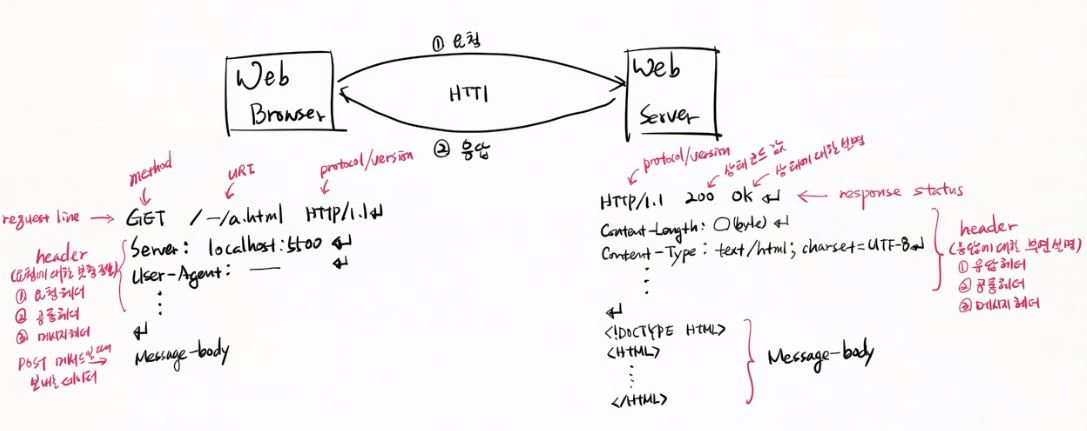 ① 요청
Web
Browser
HTTP
Web
Server
② 응답
method
URI
protocol/version
request line → GET /~/a.html HTTP/1.1↲
header
(요청에 대한 보충정보)
① 요청헤더
② 공통헤더
③ 메시지헤더
Server: localhost:5500 ↲
User-Agent: — ↲
↲
POST 메서드일때
보내는 데이터
→
Message-body
protocol/version
상태코드 값
상태에 대한 설명
HTTP/1.1 200 Ok ↲ ← response status
Content-Length: ○(byte) ↲
Content-Type: text/html; charset=UTF-8↲
header
(응답에 대한 부연설명)
① 응답헤더
② 공통헤더
③ 메시지헤더
↲
<!DOCTYPE HTML>
<HTML>
</HTML>
Message-body